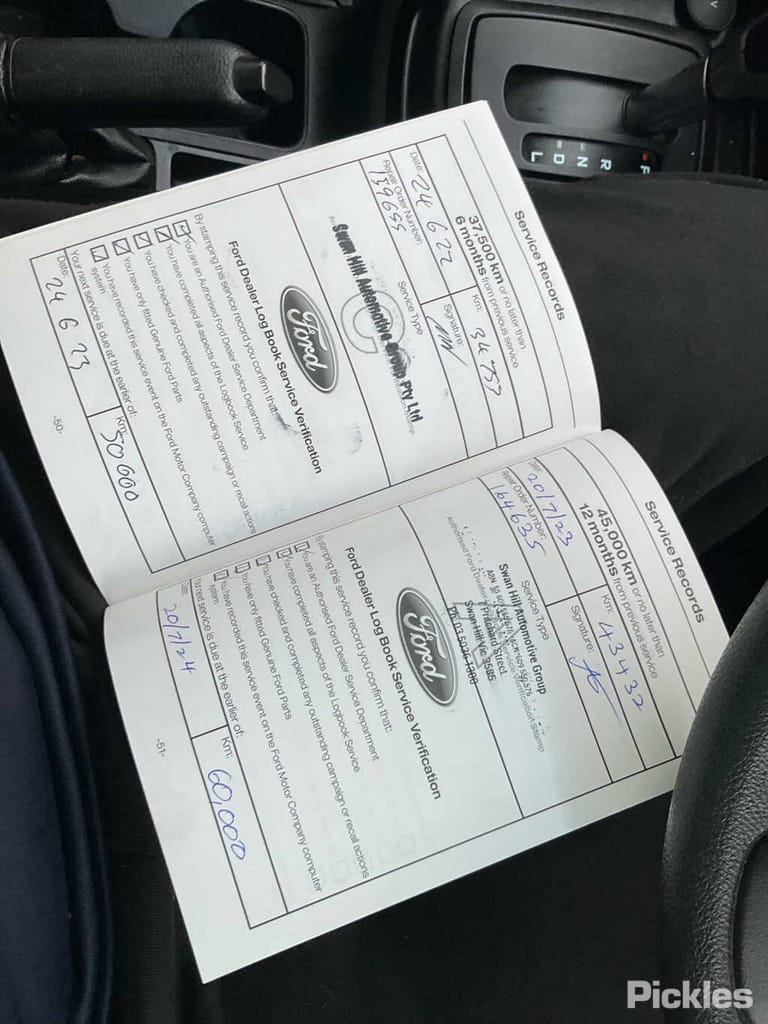 Service Records
37,500 km or no later than
6 months from previous service
Date: 24 6 22
Km: 34 757
Repair Order Number:
139655
Signature:
Service Type
Swan Hill Automotive Group Pty Ltd
Ford
Ford Dealer Log Book Service Verification
By stamping this service record you confirm that:
You are an Authorised Ford Dealer Service Department
You have completed all aspects of the Logbook Service
You have checked and completed any outstanding campaign or recall actions
You have only fitted Genuine Ford Parts
You have recorded this service event on the Ford Motor Company computer
system
Your next service is due at the earlier of:
Date: 24 6 23
Km: 50 000
-50-
Service Records
45,000 km or no later than
12 months from previous service
Date: 20/7/23
Km: 43432
Repair Order Number:
164635
Signature:
Service Type
Swan Hill Automotive Group
Street
Swan Hill Vic 3585
Authorised Ford Dealer Service Verification Stamp
Ford
Ford Dealer Log Book Service Verification
stamping this service record you confirm that:
You are an Authorised Ford Dealer Service Department
You have completed all aspects of the Logbook Service
You have checked and completed any outstanding campaign or recall actions
You have only fitted Genuine Ford Parts
You have recorded this service event on the Ford Motor Company computer
system
Your next service is due at the earlier of:
20/7/24
Km: 60,000
-51-
R
N
D
L
Pickles